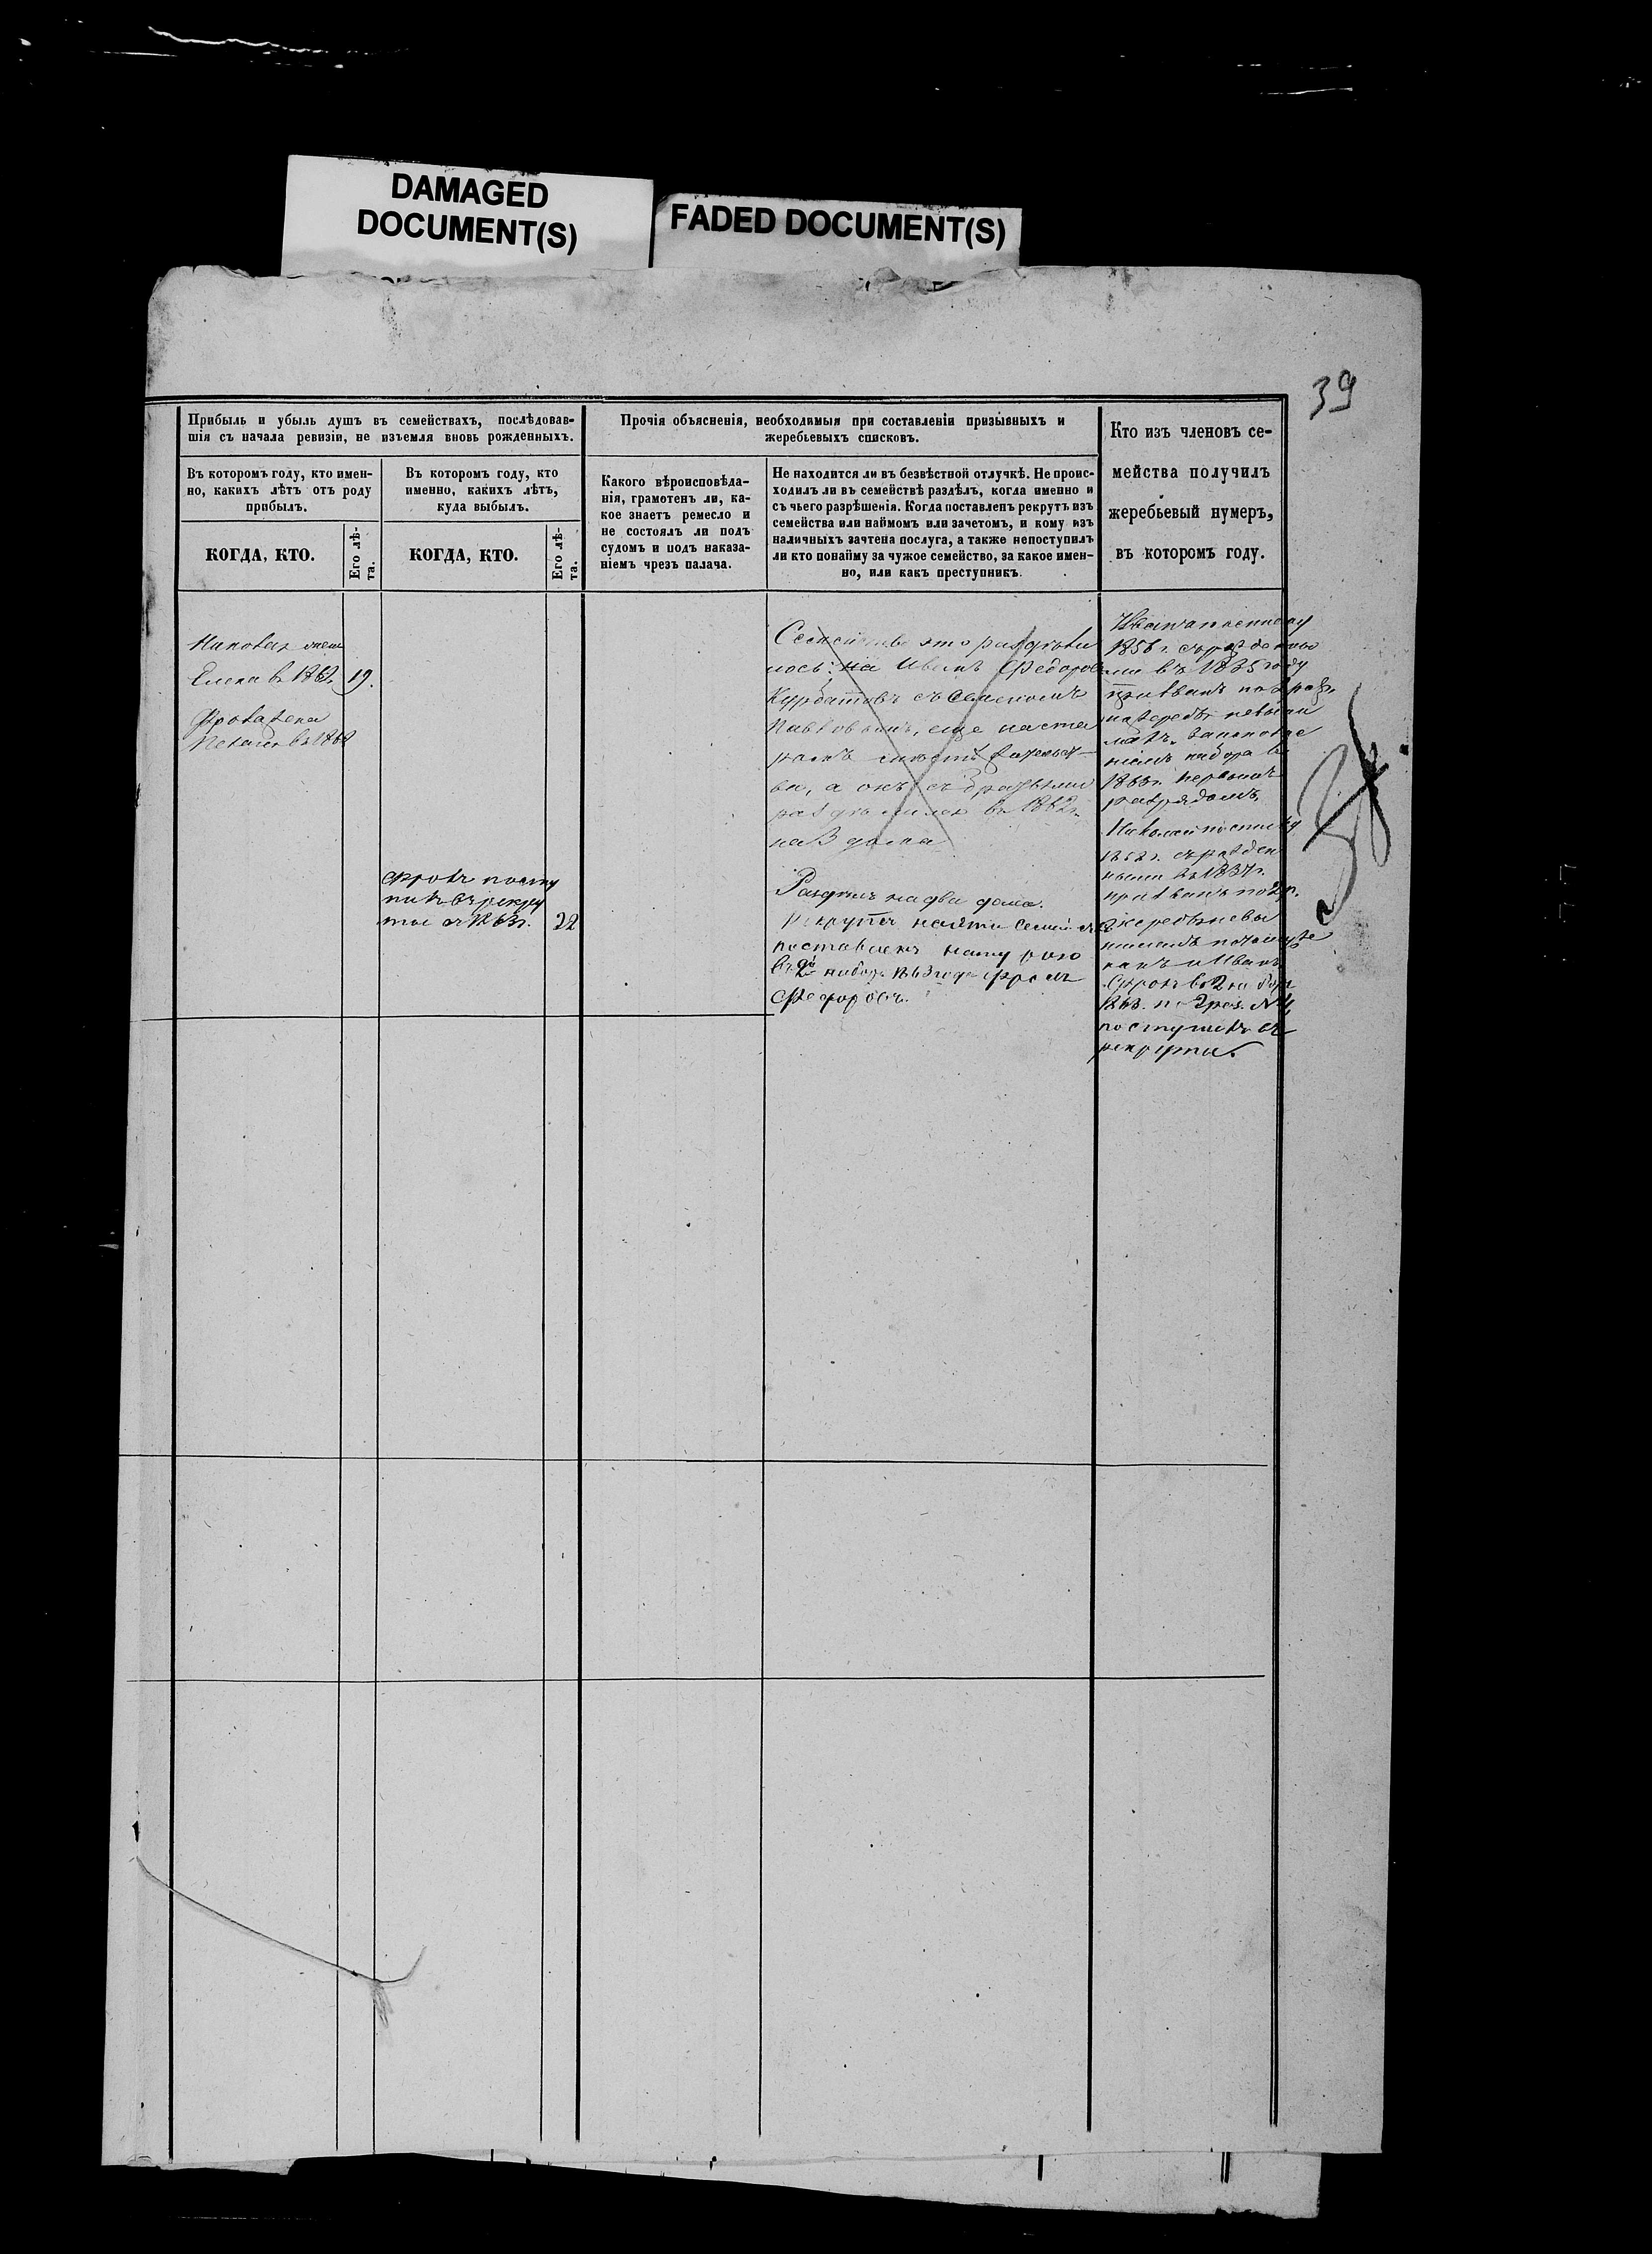 DAMAGED
DOCUMENT(S)
FADED DOCUMENT(S)
39
Прибыль и убыль душъ въ семействахъ, послѣдовав-
шія съ начала ревизіи, не изъемля вновь рожденныхъ.
Прочія объясненія, необходимыя при составленіи призывныхъ и
жеребьевыхъ списковъ.
Кто изъ членовъ се-
мейства получилъ
жеребьевый нумеръ,
въ которомъ году.
Въ которомъ году, кто имен-
но, какихъ лѣтъ отъ роду
прибылъ.
Въ которомъ году, кто
именно, какихъ лѣтъ,
куда выбылъ.
Какого вѣроисповѣда-
нія, грамотенъ ли, ка-
кое знаетъ ремесло и
не состоялъ ли подъ
судомъ и подъ наказа-
ніемъ чрезъ палача.
Не находится ли въ безвѣстной отлучкѣ. Не проис-
ходилъ ли въ семействѣ раздѣлъ, когда именно и
съ чьего разрѣшенія. Когда поставленъ рекрутъ изъ
семейства или наймомъ или зачетомъ, и кому изъ
наличныхъ зачтена послуга, а также непоступилъ
ли кто понайму за чужое семейство, за какое имен-
но, или какъ преступникъ.
КОГДА, КТО.
Его лѣ-
та.
КОГДА, КТО.
Его лѣ-
та.
Елена в 1862 19.
Фрола жена
Пелагея в 1862
Фролъ посту
пилъ въ рекру
ты въ 1863г. 22
Семейство это раздѣли
лось: на Иванъ Федоровъ
Курбатовъ съ Семеномъ
Павловымъ, еще на ста
ромъ мѣстѣ
ва, а онъ съ братьями
раздѣлился в 1862г.
на 3 дома
Раздѣлъ на два дома.
Рекрутъ
поставленъ натурою
въ 2й наборъ 1863 года Фролъ
Федоровъ.
1856 г. съ рожденны
ми въ 1835 году
призванъ по 2 раз.
жеребья невыни
малъ.
набора в
1863г. первымъ
разрядомъ.
Николай по списку
1858г. съ рожден
ными въ 1837г.
призванъ по 2р.
жеребья невы
нималъ потому же
какъ и Иванъ
Фролъ въ 2 наборъ
1863. по 2 раз. №
поступилъ въ
рекруты.